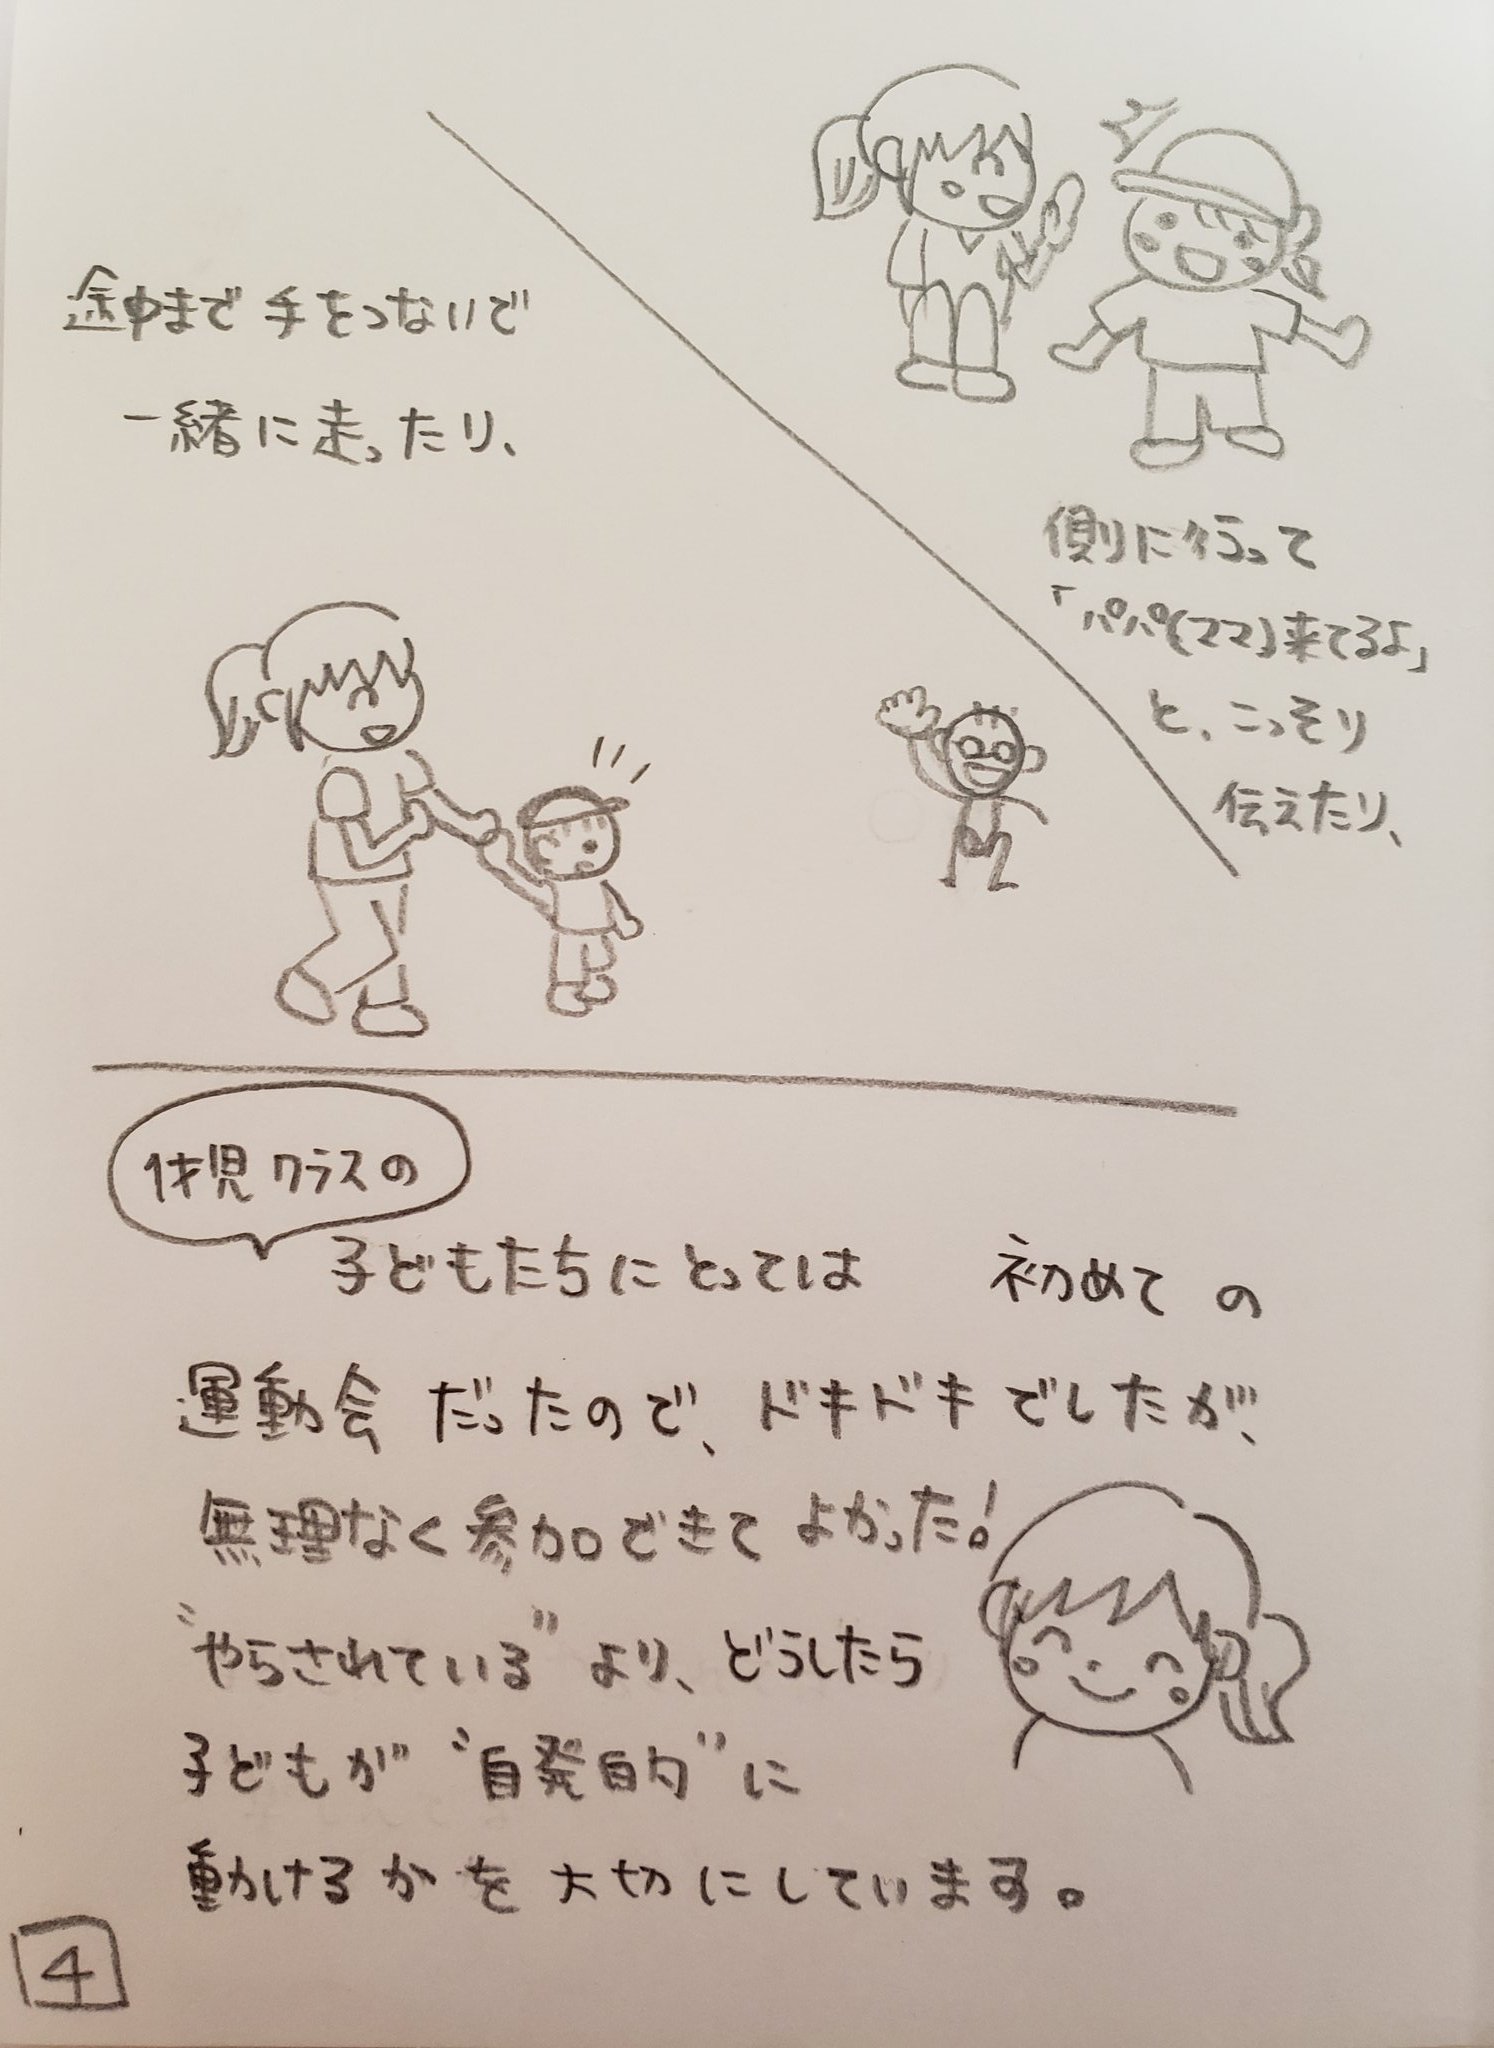 途中まで手をつないで
一緒に走ったり、
側に行って
「パパ(ママ)来てるよ」
と、こっそり
伝えたり、
1才児クラスの
子どもたちにとっては 初めての
運動会だったので、ドキドキでしたが、
無理なく参加できてよかった!
"やらされている"より、どうしたら
子どもが"自発的"に
動けるかを大切にしています。
4